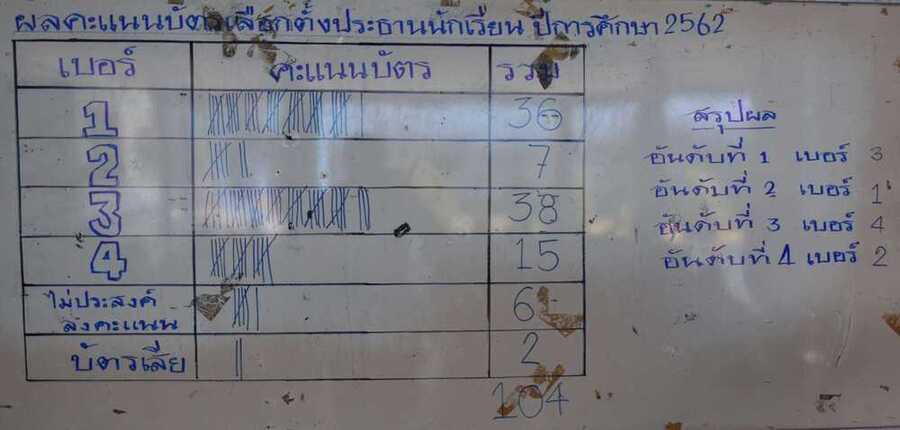 ผลคะแนนบัตรเลือกตั้งประธานนักเรียน ปีการศึกษา 2562
เบอร์ คะแนนบัตร รวม
1 36
2 7
3 38
4 15
ไม่ประสงค์ลงคะแนน 6
บัตรเสีย 2
104
สรุปผล
อันดับที่ 1 เบอร์ 3
อันดับที่ 2 เบอร์ 1
อันดับที่ 3 เบอร์ 4
อันดับที่ 4 เบอร์ 2